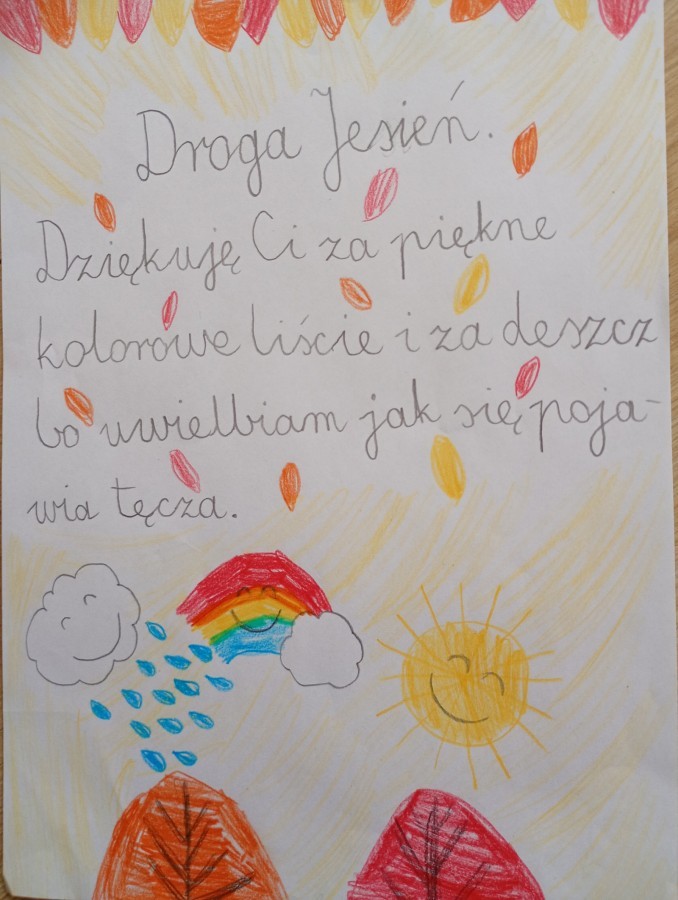 Droga Jesień.
Dziękuję Ci za piękne
kolorowe liście i za deszcz
bo uwielbiam jak się poja-
wia tęcza.